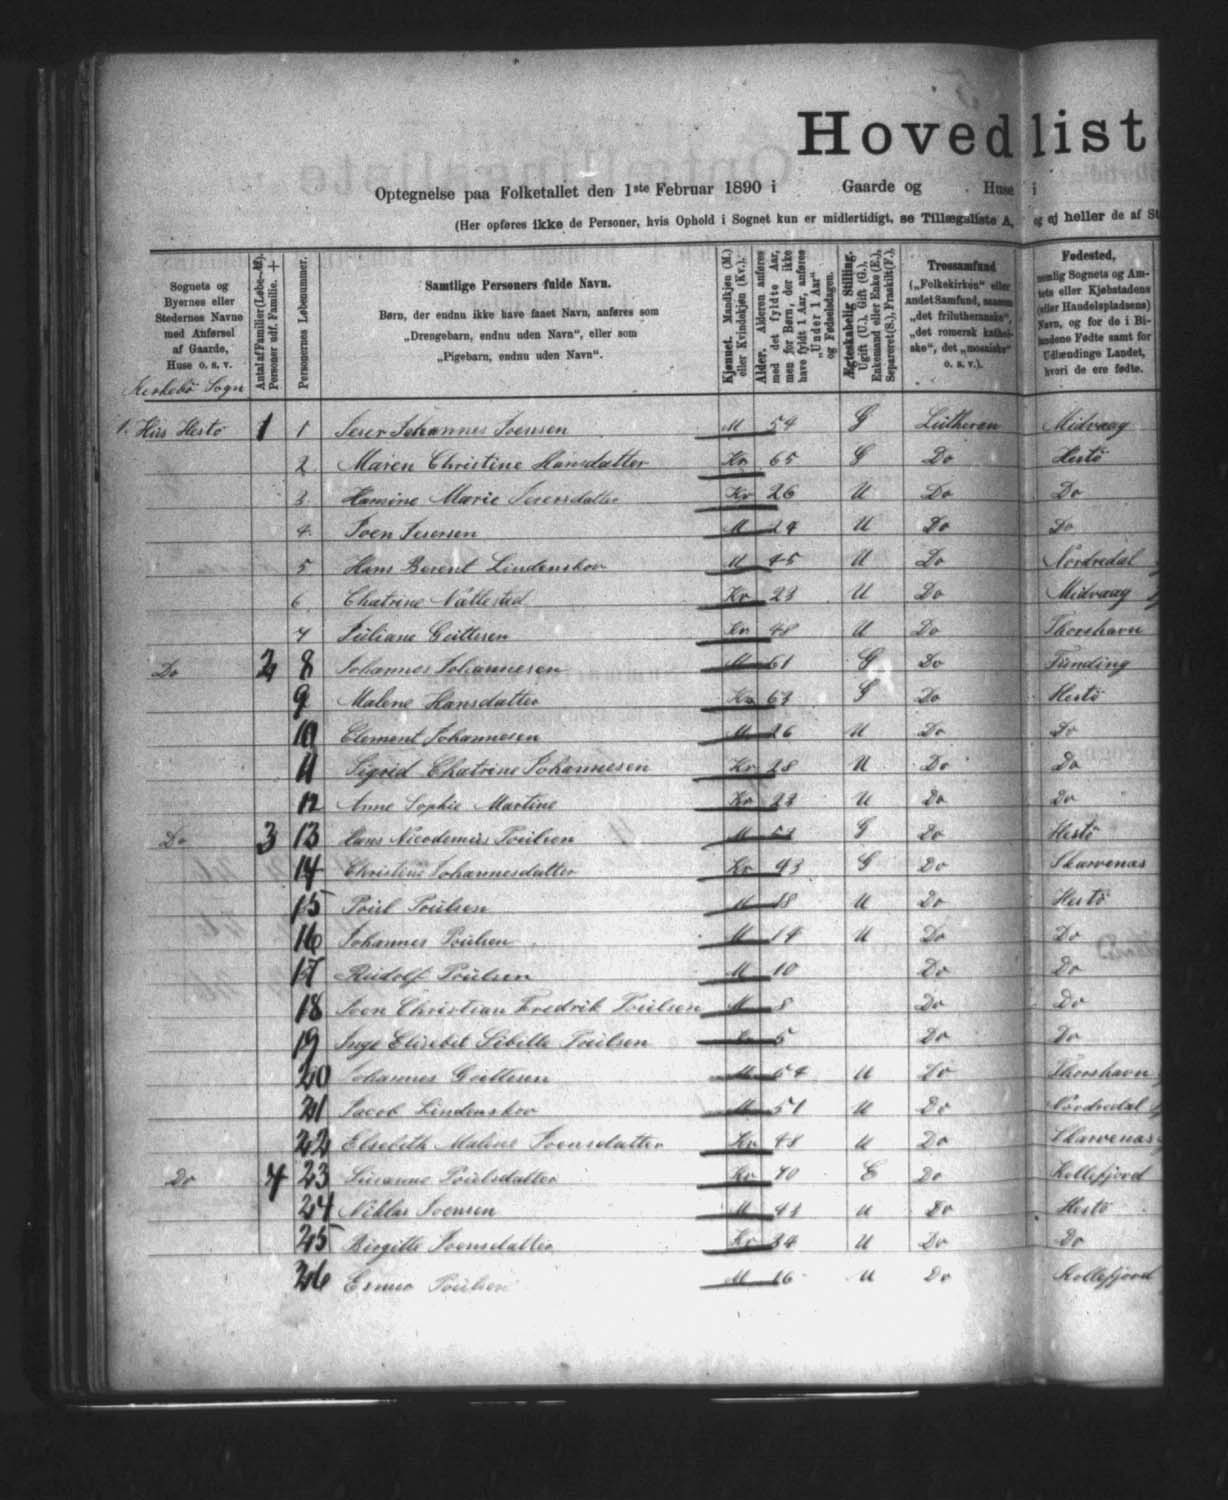 Hovedliste
Optegnelse paa Folketallet den 1ste Februar 1890 i Gaarde og Huse i
(Her opføres ikke de Personer, hvis Ophold i Sognet kun er midlertidigt, se Tillægsliste A, og ej heller de af St
Sognets og Byernes eller Stedernes Navne med Anførsel af Gaarde, Huse o. s. v.
Antal af Familier (Løbe-Nr). Personer udf. Familie. +
Personernes Løbenummer.
Samtlige Personers fulde Navn.
Børn, der endnu ikke have faaet Navn, anføres som
„Drengebarn, endnu uden Navn“, eller som
„Pigebarn, endnu uden Navn“.
Kjønnet. Mandkjøn (M.) eller Kvindekjøn (Kv.).
Alder. Alderen anføres med det fyldte Aar, men for Børn, der ikke have fyldt 1 Aar, anføres „Under 1 Aar“ og Fødselsdagen.
Ægteskabelig Stilling. Ugift (U.), Gift (G.), Enkemand eller Enke (E.), Separeret (S.), Fraskilt (F.).
Trossamfund („Folkekirken“ eller andet Samfund, saasom „det frilutheranske“, „det romersk katholske“, det „mosaiske“ o. s. v.).
Fødested, nemlig Sognets og Amtets eller Kjøbstadens (eller Handelspladsens) Navn, og for de i Bilandene Fødte samt for Udlændinge Landet, hvori de ere fødte.
Kirkebø Sogn
1. Hus Hestö 1 1 Joen Johannes Joensen M 54 G Lutheran Midvaag
2 Maren Christine Hansdatter Kv 65 G Do Hestö
3 Hansine Marie Joensdatter Kv 26 U Do Do
4 Joen Joensen M 24 U Do Do
5 Hans Berent Lindenskov M 45 U Do Nordredal
6 Chatrine Nattestad Kv 23 U Do Midvaag
7 Juliane Guttesen Kv 48 U Do Thorshavn
Do 2 8 Johannes Johannesen M 61 G Do Funding
9 Malene Hansdatter Kv 63 G Do Hestö
10 Clement Johannesen M 26 U Do Do
11 Sigrid Chatrine Johannesen Kv 28 U Do Do
12 Anne Sophie Martine Kv 23 U Do Do
Do 3 13 Hans Nicodemus Poulsen M 53 G Do Hestö
14 Christine Johannesdatter Kv 43 G Do Skarvenæs
15 Poul Poulsen M 18 U Do Hestö
16 Johannes Poulsen M 14 U Do Do
17 Rudolf Poulsen M 10 Do Do
18 Joen Christian Fredrik Poulsen M 8 Do Do
19 Inge Elisebet Sibille Poulsen Kv 5 Do Do
20 Johannes Guttesen M 54 U Do Thorshavn
21 Jacob Lindenskov M 51 U Do Nordredal
22 Elsebeth Malene Joensdatter Kv 48 U Do Skarvenæs
Do 4 23 Susanne Poulsdatter Kv 70 E Do Kollefjord
24 Niklas Joensen M 43 U Do Hestö
25 Birgitte Joensdatter Kv 34 U Do Do
26 Poulsen M 16 U Do Kollefjord